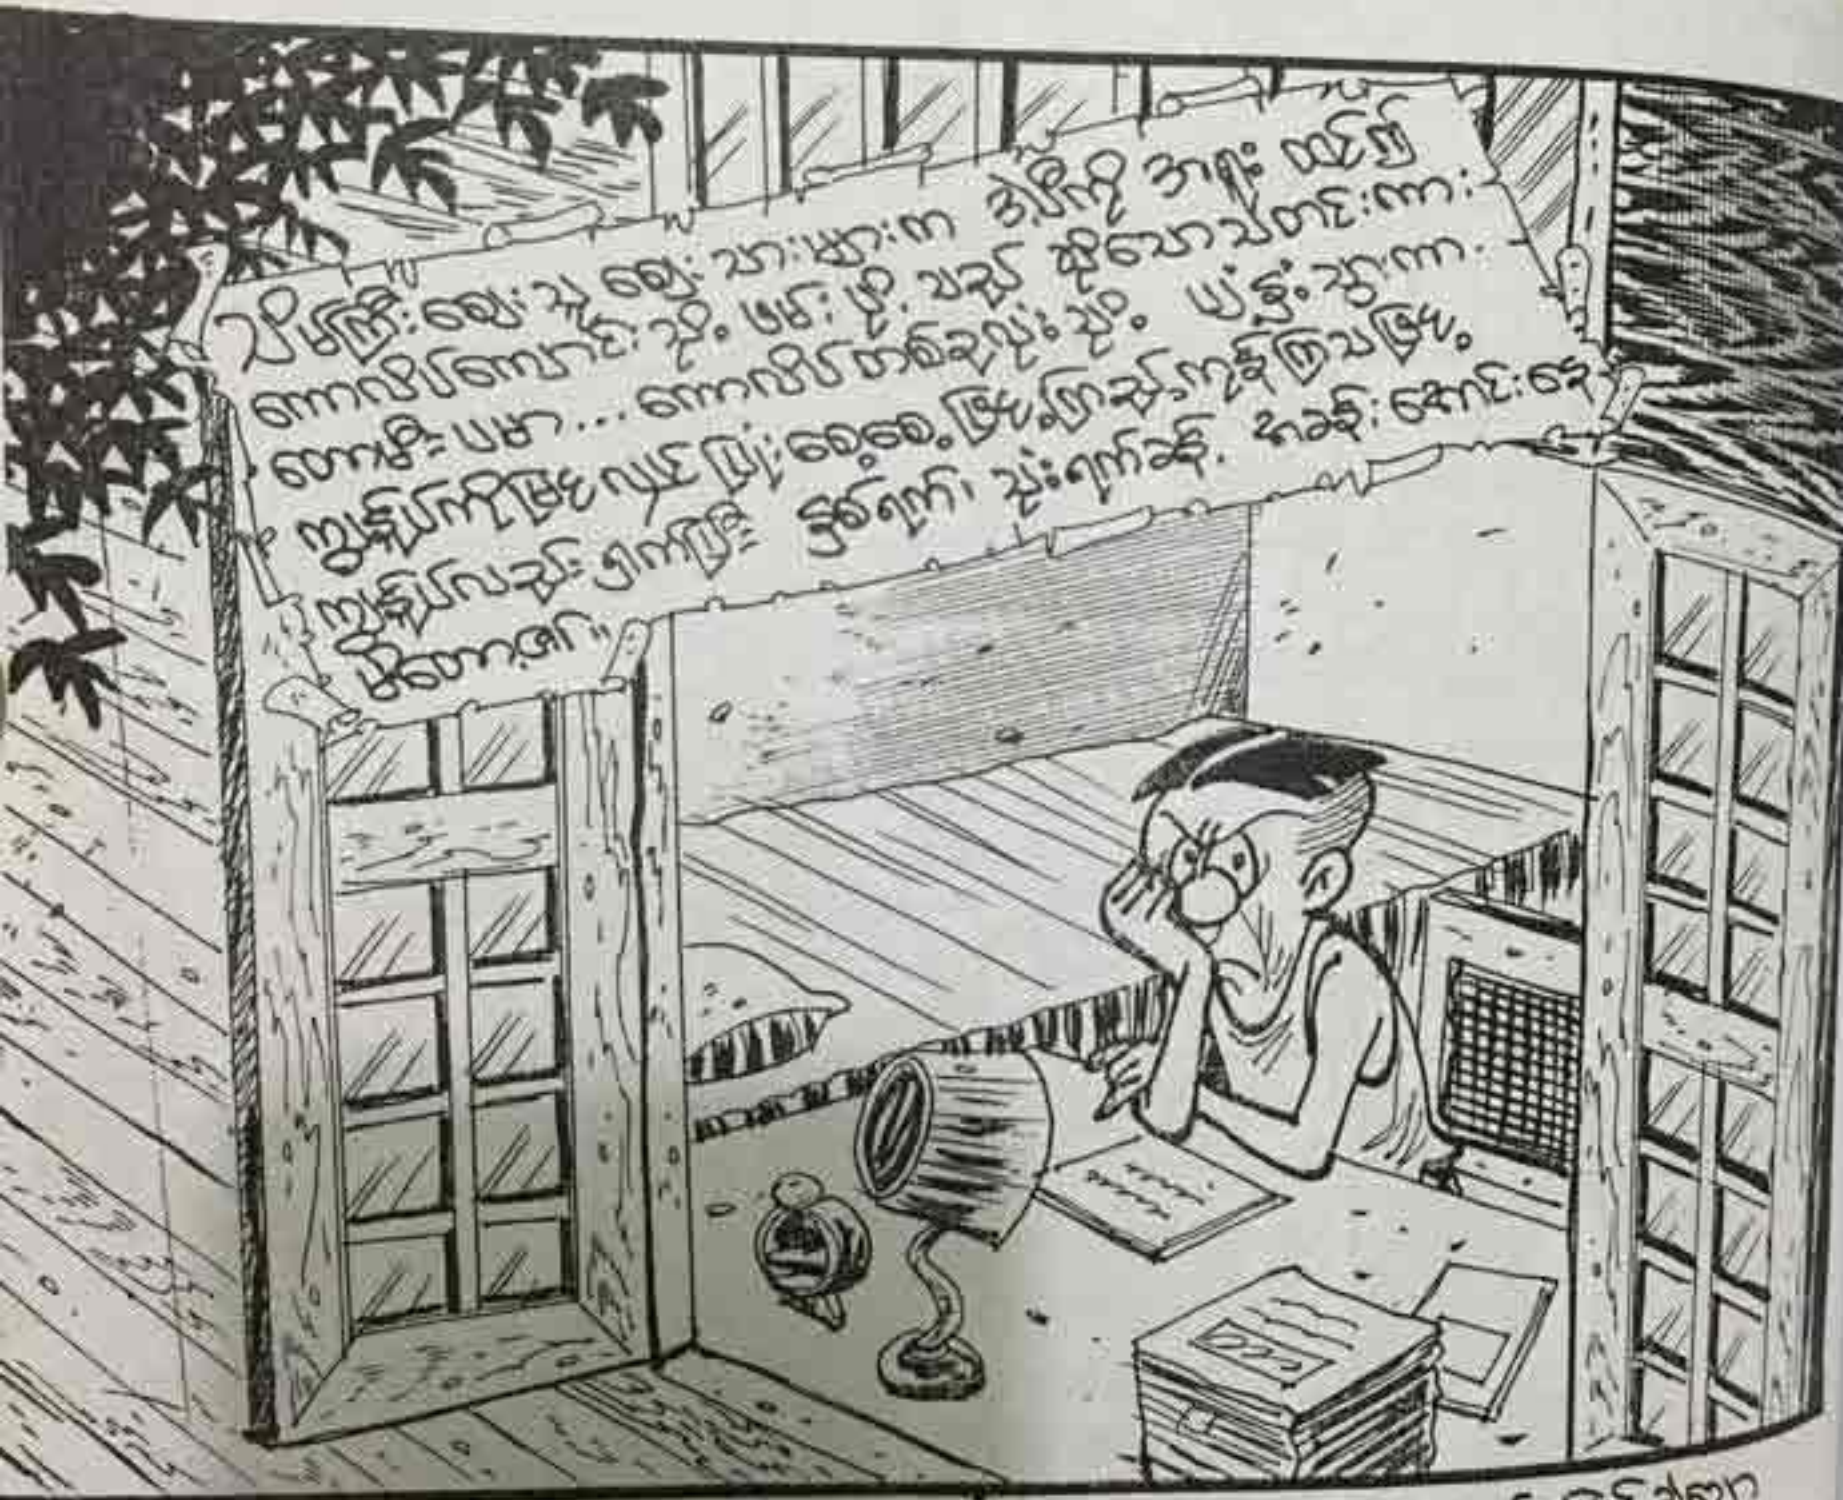 သိမ်ကြီးဈေးသူ ဈေးသားများက ဒါ့ပီကို အရူး ထင်၍
ကောလိပ်ကျောင်းသို့ ဖမ်း ပို့ သည် ဆိုသော သတင်းကား
တောမီး ပမာ... ကောလိပ်တစ်ခုလုံး သို့ ပျံ့နှံ့ သွားကာ
ကျွန်ုပ်ကိုမြင်လျှင် ပြုံးစေ့စေ့ဖြင့် ကြည့်ကုန်ကြသဖြင့်
ကျွန်ုပ်လည်း ရှက်ကြီး နှစ်ရက်၊ သုံးရက်ခန့် အခန်းအောင်းနေ
မိတော့၏။